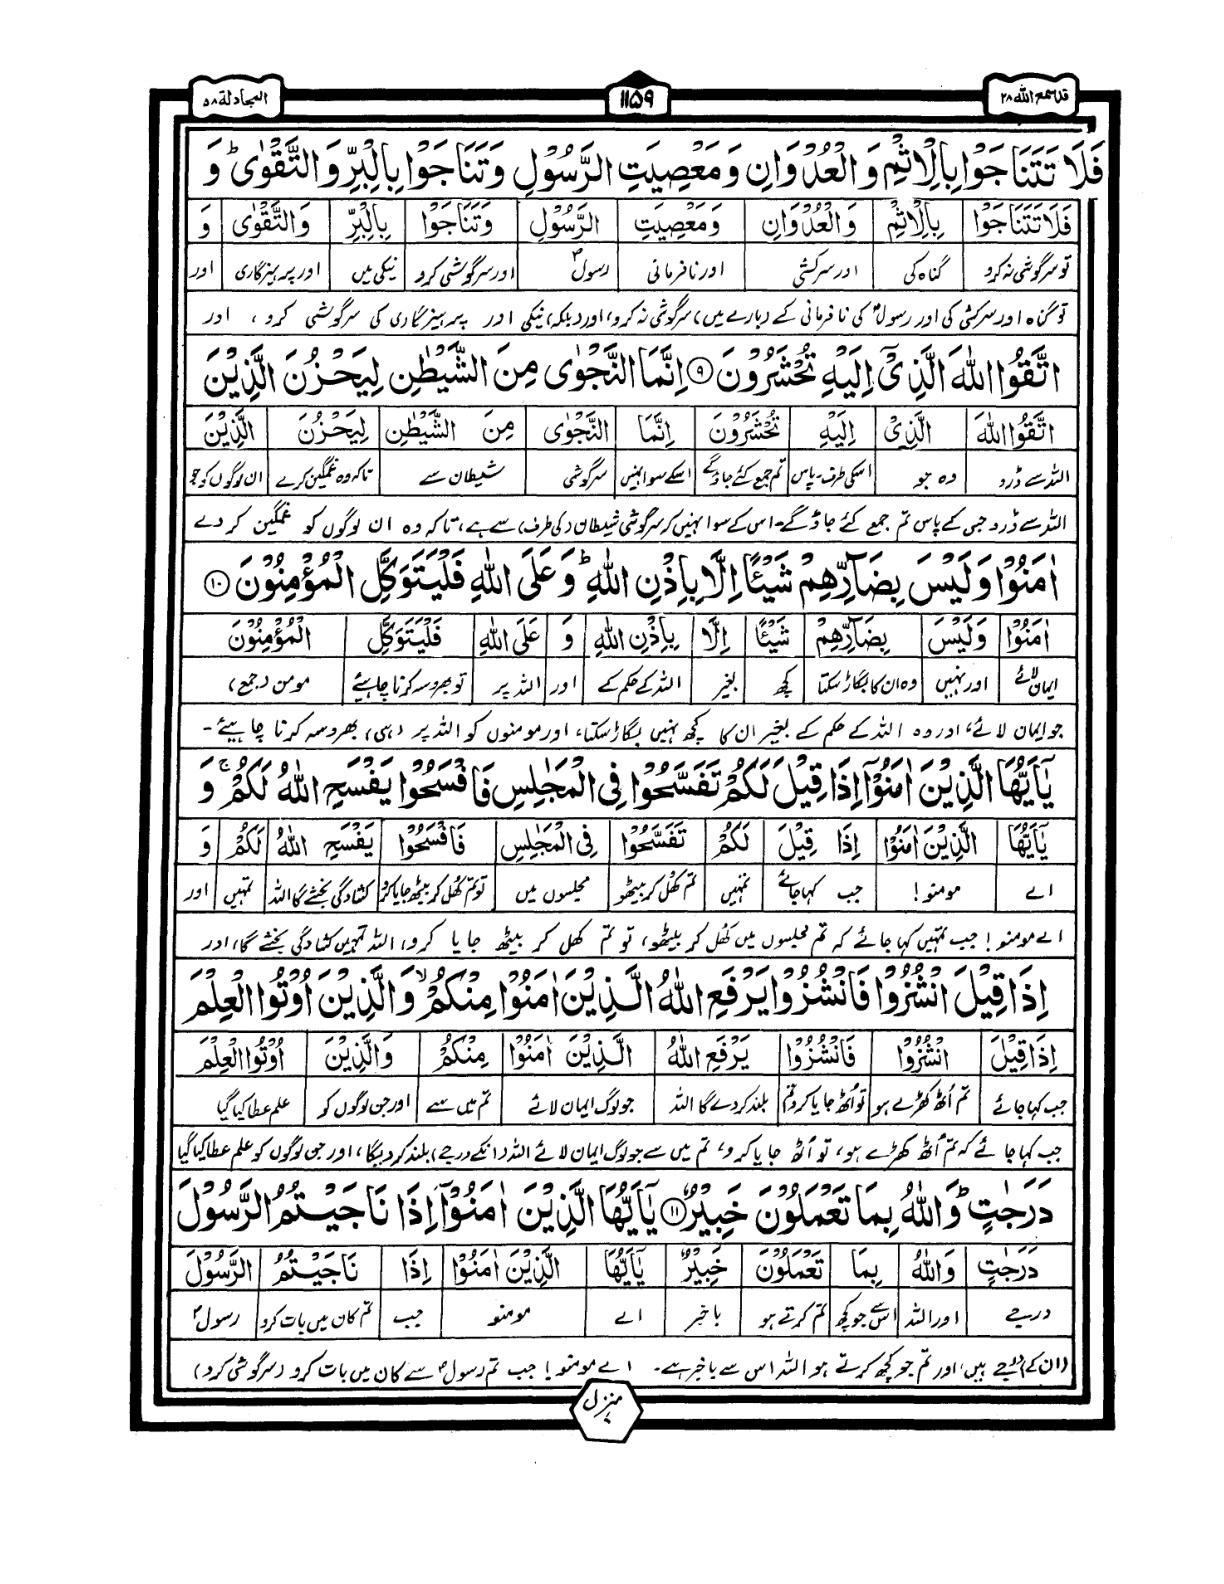 قد سمع الله ٢٨
١١۵٩
المجادلة ۵٨
فَلَا تَتَنَاجَوْا بِالْاِثْمِ وَ الْعُدْوَانِ وَ مَعْصِيَتِ الرَّسُوْلِ وَ تَنَاجَوْا بِالْبِرِّ وَ التَّقْوٰى ؕ وَ
فَلَا تَتَنَاجَوْا بِالْاِثْمِ وَ الْعُدْوَانِ وَ مَعْصِيَتِ الرَّسُوْلِ وَ تَنَاجَوْا بِالْبِرِّ وَ التَّقْوٰى وَ
تو سرگوشی نہ کرو گناہ کی اور سرکشی اور نافرمانی رسولؐ اور سرگوشی کرو نیکی میں اور پرہیزگاری اور
تو گناہ اور سرکشی کی اور رسولؐ کی نافرمانی کے (بارے میں) سرگوشی نہ کرو، اور (بلکہ) نیکی اور پرہیزگاری کی سرگوشی کرو، اور
اتَّقُوا اللّٰهَ الَّذِىْۤ اِلَيْهِ تُحْشَرُوْنَ ۹ اِنَّمَا النَّجْوٰى مِنَ الشَّيْطٰنِ لِيَحْزُنَ الَّذِيْنَ
اتَّقُوا اللّٰهَ الَّذِىْۤ اِلَيْهِ تُحْشَرُوْنَ اِنَّمَا النَّجْوٰى مِنَ الشَّيْطٰنِ لِيَحْزُنَ الَّذِيْنَ
اللہ سے ڈرو وہ جو اسکی طرف۔پاس تم جمع کئے جاؤ گے اسکے سوا نہیں سرگوشی شیطان سے تاکہ وہ غمگین کرے ان لوگوں کو جو
اللہ سے ڈرو جس کے پاس تم جمع کئے جاؤ گے۔ اس کے سوا نہیں کہ سرگوشی شیطان (کی طرف) سے ہے، تاکہ وہ ان لوگوں کو غمگین کر دے
اٰمَنُوْا وَ لَيْسَ بِضَآرِّهِمْ شَيْـًٔا اِلَّا بِاِذْنِ اللّٰهِ ؕ وَ عَلَى اللّٰهِ فَلْيَتَوَكَّلِ الْمُؤْمِنُوْنَ ۱۰
اٰمَنُوْا وَ لَيْسَ بِضَآرِّهِمْ شَيْـًٔا اِلَّا بِاِذْنِ اللّٰهِ وَ عَلَى اللّٰهِ فَلْيَتَوَكَّلِ الْمُؤْمِنُوْنَ
ایمان لائے اور نہیں وہ ان کا بگاڑ سکتا کچھ بغیر اللہ کے حکم کے اور اللہ پر تو بھروسہ کرنا چاہیے مومن (جمع)
جو ایمان لائے، اور وہ اللہ کے حکم کے بغیر ان کا کچھ نہیں بگاڑ سکتا، اور مومنوں کو اللہ پر (ہی) بھروسہ کرنا چاہیئے۔
يٰۤاَيُّهَا الَّذِيْنَ اٰمَنُوْۤا اِذَا قِيْلَ لَكُمْ تَفَسَّحُوْا فِى الْمَجٰلِسِ فَافْسَحُوْا يَفْسَحِ اللّٰهُ لَكُمْ ۚ وَ
يٰۤاَيُّهَا الَّذِيْنَ اٰمَنُوْۤا اِذَا قِيْلَ لَكُمْ تَفَسَّحُوْا فِى الْمَجٰلِسِ فَافْسَحُوْا يَفْسَحِ اللّٰهُ لَكُمْ وَ
اے مومنو! جب کہا جائے تمہیں تم کھل کر بیٹھو مجلسوں میں تو تم کھل کر بیٹھ جایا کرو کشادگی بخشے گا اللہ تمہیں اور
اے مومنو! جب تمہیں کہا جائے کہ تم مجلسوں میں کھل کر بیٹھو، تو تم کھل کر بیٹھ جایا کرو، اللہ تمہیں کشادگی بخشے گا، اور
اِذَا قِيْلَ انْشُزُوْا فَانْشُزُوْا يَرْفَعِ اللّٰهُ الَّذِيْنَ اٰمَنُوْا مِنْكُمْ ۙ وَ الَّذِيْنَ اُوْتُوا الْعِلْمَ
اِذَا قِيْلَ انْشُزُوْا فَانْشُزُوْا يَرْفَعِ اللّٰهُ الَّذِيْنَ اٰمَنُوْا مِنْكُمْ وَ الَّذِيْنَ اُوْتُوا الْعِلْمَ
جب کہا جائے تم اُٹھ کھڑے ہو تو اُٹھ جایا کرو تم بلند کردے گا اللہ جو لوگ ایمان لائے تم میں سے اور جن لوگوں کو علم عطا کیا گیا
جب کہا جائے کہ تم اُٹھ کھڑے ہو، تو اُٹھ جایا کرو، تم میں سے جو لوگ ایمان لائے اللہ (انکے درجے) بلند کردیگا، اور جن لوگوں کو علم عطا کیا گیا
دَرَجٰتٍ ؕ وَ اللّٰهُ بِمَا تَعْمَلُوْنَ خَبِيْرٌ ۱۱ يٰۤاَيُّهَا الَّذِيْنَ اٰمَنُوْۤا اِذَا نَاجَيْتُمُ الرَّسُوْلَ
دَرَجٰتٍ وَ اللّٰهُ بِمَا تَعْمَلُوْنَ خَبِيْرٌ يٰۤاَيُّهَا الَّذِيْنَ اٰمَنُوْۤا اِذَا نَاجَيْتُمُ الرَّسُوْلَ
درجے اور اللہ اس سے جو کچھ تم کرتے ہو باخبر اے مومنو جب تم کان میں بات کرو رسولؐ
(ان کے) درجے ہیں، اور تم جو کچھ کرتے ہو اللہ اس سے باخبر ہے۔ اے مومنو! جب تم رسولؐ سے کان میں بات کرو (سرگوشی کرو)
منزل ٧